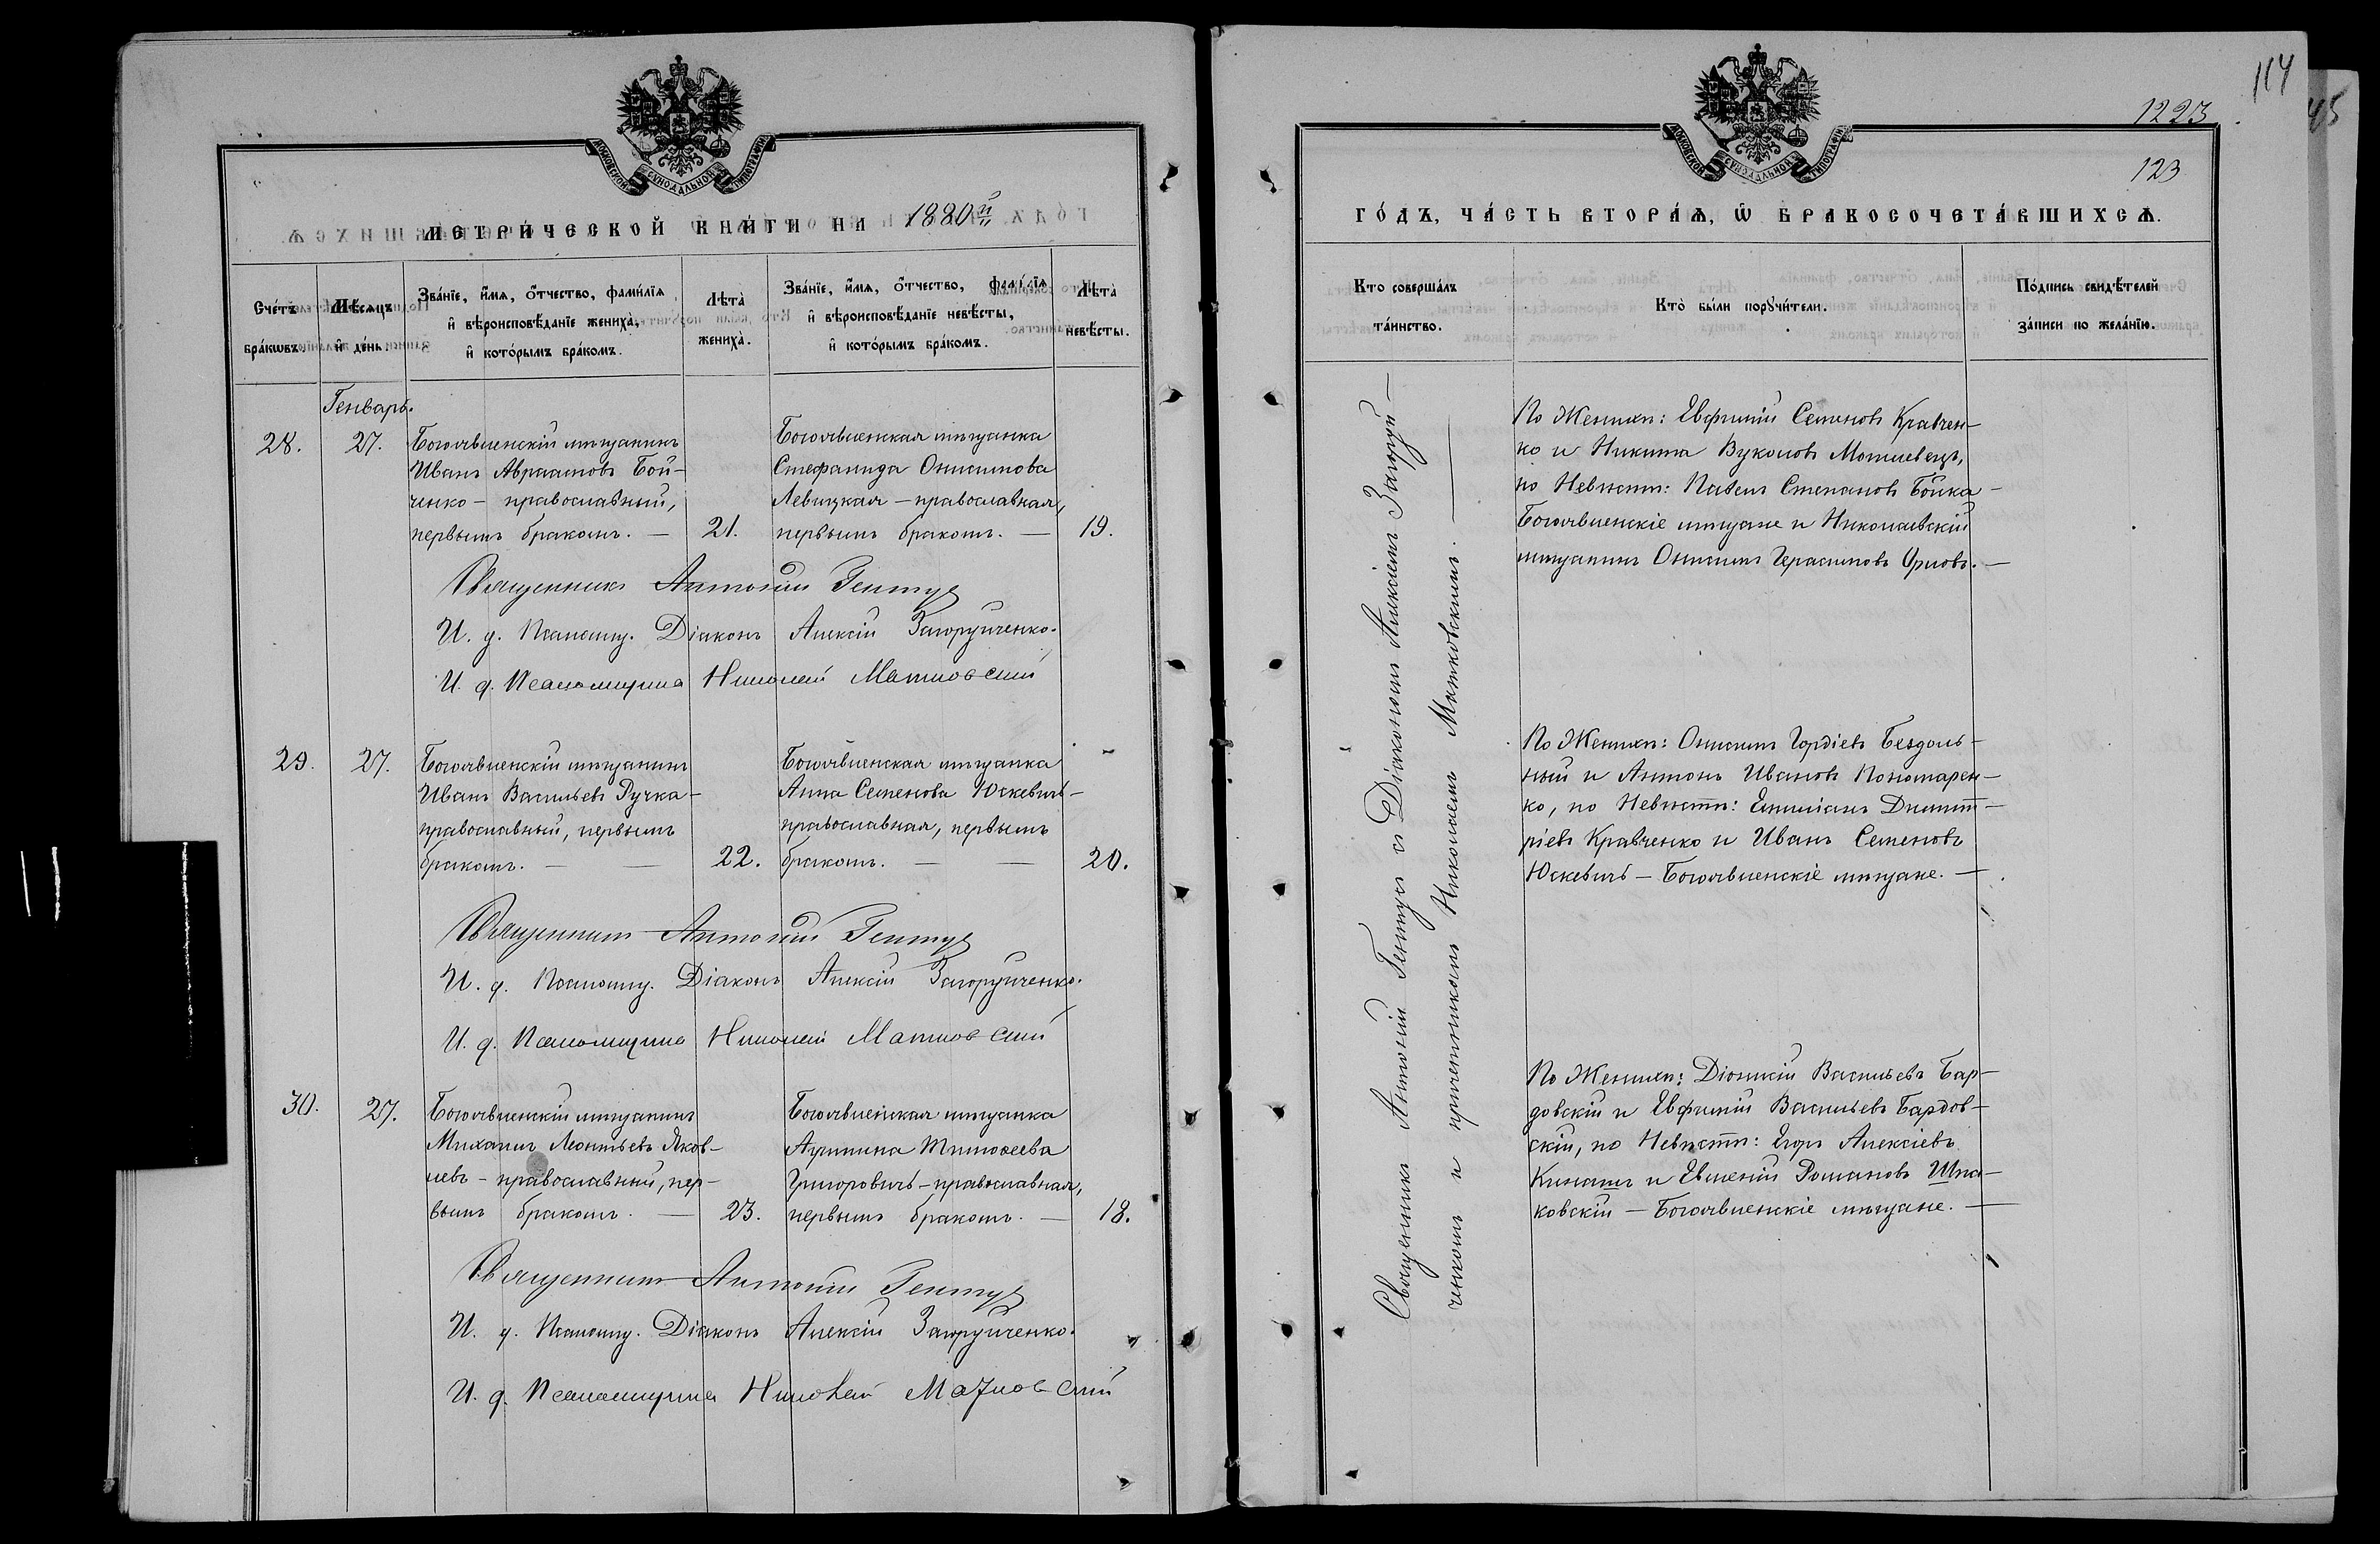 МОСКОВСКОЙ СѴНОДАЛЬНОЙ ТИПОГРАФІИ
МЕТРИ́ЧЕСКОЙ КНИ́ГИ НА 1880й
Сче́тъ бра́кѡвъ.
Мѣ́сяцъ и҆ де́нь
Зва́нїе, и҆́мѧ, ѻ҆́тчество, фами́лїѧ и҆ вѣроисповѣ́данїе жениха̀, и҆ кото́рымъ бра́комъ.
Лѣта̀ жениха̀.
Зва́нїе, и҆́мѧ, ѻ҆́тчество, фами́лїѧ и҆ вѣроисповѣ́данїе невѣ́сты, и҆ кото́рымъ бра́комъ.
Лѣта̀ невѣ́сты.
Генварь.
28.
27.
Богоявленскій мѣщанинъ
Иванъ Авраамовъ Бой-
ченко - православный,
первымъ бракомъ. —
21.
Богоявленская мѣщанка
Стефанида Онисимова
Левицкая - православная,
первымъ бракомъ. —
19.
Священникъ Антоній Гентуг
И. д. Псаломщ. Діаконъ Алексій Загоруйченко.
И. д. Псаломщика Николай Матковскій
29.
27.
Богоявленскій мѣщанинъ
Иванъ Васильевъ Ручка -
православный, первымъ
бракомъ. —
22.
Богоявленская мѣщанка
Анна Семенова Юскевичъ -
православная, первымъ
бракомъ. —
20.
Священникъ Антоній Гентуг
И. д. Псаломщ. Діаконъ Алексій Загоруйченко.
И. д. Псаломщика Николай Матковскій
30.
27.
Богоявленскій мѣщанинъ
Михаилъ Леонтьевъ Яков-
левъ - православный, пер-
вымъ бракомъ. —
23.
Богоявленская мѣщанка
Акулина Тимоѳеева
Григоровичъ - православная,
первымъ бракомъ. —
18.
Священникъ Антоній Гентуг
И. д. Псаломщ. Діаконъ Алексій Загоруйченко.
И. д. Псаломщика Николай Матковскій
114
45
1223
123
МОСКОВСКОЙ СѴНОДАЛЬНОЙ ТИПОГРАФІИ
ГО́ДЪ, ЧА́СТЬ ВТОРА́Ѧ, Ѡ҆ БРАКОСОЧЕТА́ВШИХСѦ.
Кто̀ соверша́лъ та́инство.
Кто̀ бы́ли порꙋчи́тели.
По́дпись свидѣ́телей за́писи по жела́нїю.
Священникъ Антоній Гентуг съ Діакономъ Алексіемъ Загоруй-
ченкомъ и причетникомъ Николаемъ Матковскимъ. —
По Женихѣ: Евфимій Семеновъ Кравчен-
ко и Никита Вуколовъ Могилевецъ,
по Невѣстѣ: Павелъ Степановъ Бойка -
Богоявленскіе мѣщане и Николаевскій
мѣщанинъ Онисимъ Герасимовъ Орловъ. —
По Женихѣ: Онисимъ Гордіевъ Бездоль-
ный и Антонъ Ивановъ Пономарен-
ко, по Невѣстѣ: Емиліанъ Димит-
ріевъ Кравченко и Иванъ Семеновъ
Юскевичъ - Богоявленскіе мѣщане. —
По Женихѣ: Діонисій Васильевъ Бар-
довскій и Евфимій Васильевъ Бардов-
скій, по Невѣстѣ: Егоръ Алексіевъ
и Евгеній Романовъ Шпа-
ковскій - Богоявленскіе мѣщане. —